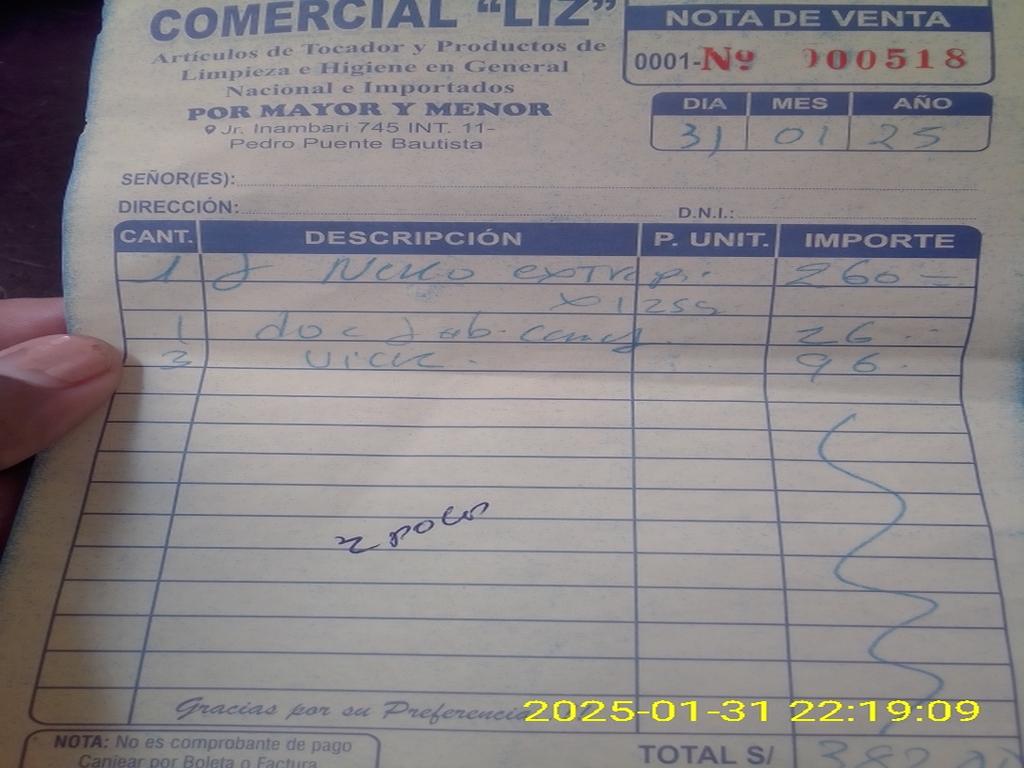 COMERCIAL "LIZ"
Artículos de Tocador y Productos de
Limpieza e Higiene en General
Nacional e Importados
POR MAYOR Y MENOR
Jr. Inambari 745 INT. 11-
Pedro Puente Bautista
NOTA DE VENTA
0001-Nº 000518
DIA MES AÑO
31 01 25
SEÑOR(ES):
DIRECCIÓN: D.N.I.:
CANT. DESCRIPCIÓN P. UNIT. IMPORTE
1 260
1 doc 26
3 Vick 96
Gracias por su Preferencia
2025-01-31 22:19:09
NOTA: No es comprobante de pago
Canjear por Boleta o Factura
TOTAL S/ 382